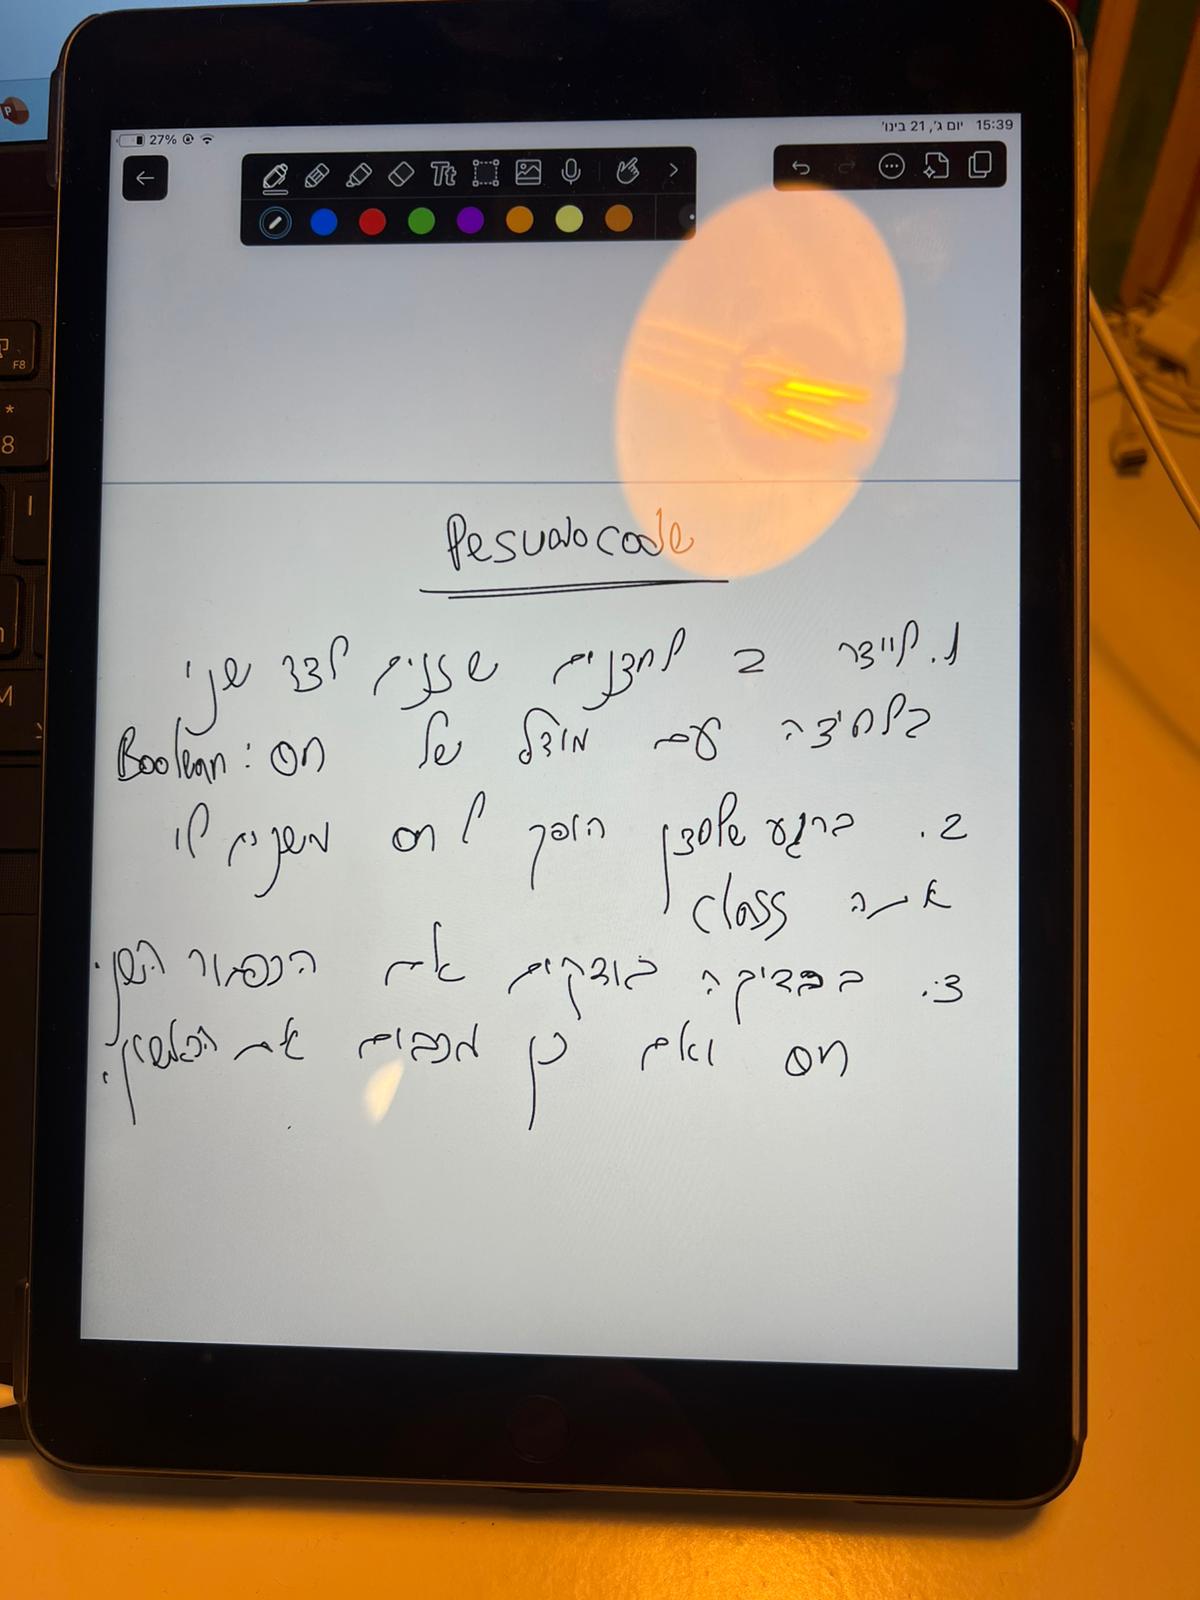 15:39 יום ג', 21 בינו'
27%
Tt
Pesuodocode
1. לייצר 2 לחצנים שזזים לצד שני
בלחיצה עם מודל של Boolean: on
2. ברגע שלחצן הופך ל on משנים לו
את ה class
3. בבדיקה בודקים אם הכפתור השני
on ואם כן מכבים את הראשון.
F8
*
8
M
P